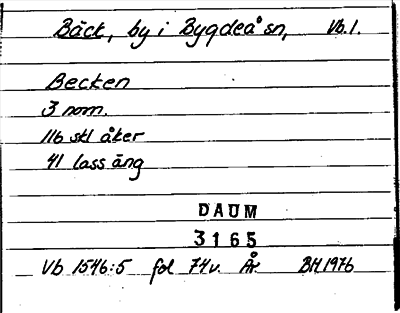 Bäck, by i Bygdeå sn, Vb.1.
Becken
3 nom.
116 skl åker
41 lass äng
DAUM
3165
Vb 1546:5 fol 74v. Är BH1976